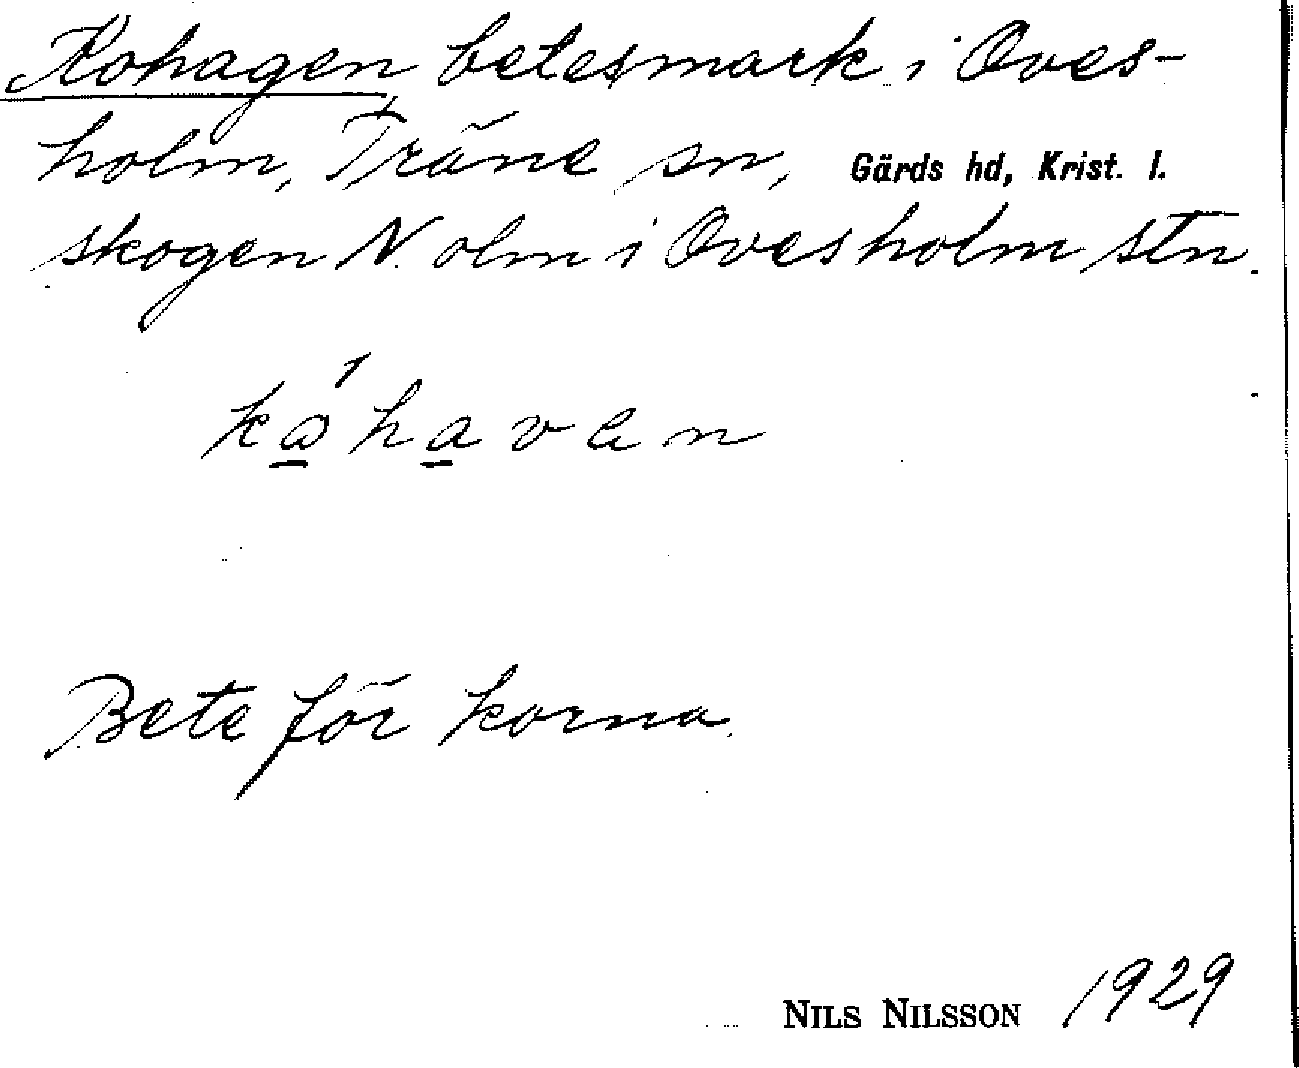 Kohagen betesmark i Oves-
holm, Träne sn, Gärds hd, Krist. l.
skogen N. olm i Ovesholm stn.
ka̱´ha̱ven
Bete för korna.
NILS NILSSON 1929